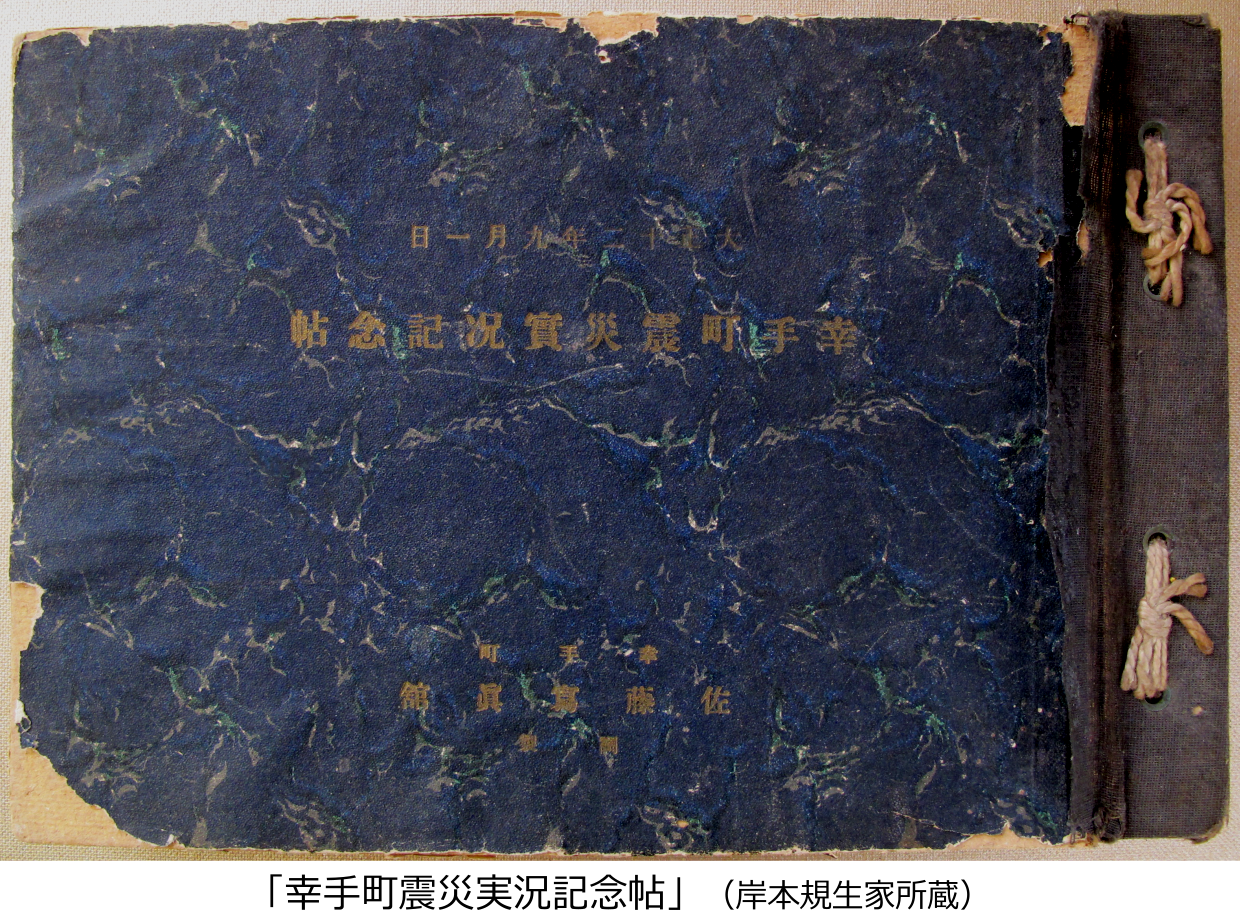 大正十二年九月一日
幸手町震災實况記念帖
幸手町
佐藤寫眞館
「幸手町震災実況記念帖」（岸本規生家所蔵）